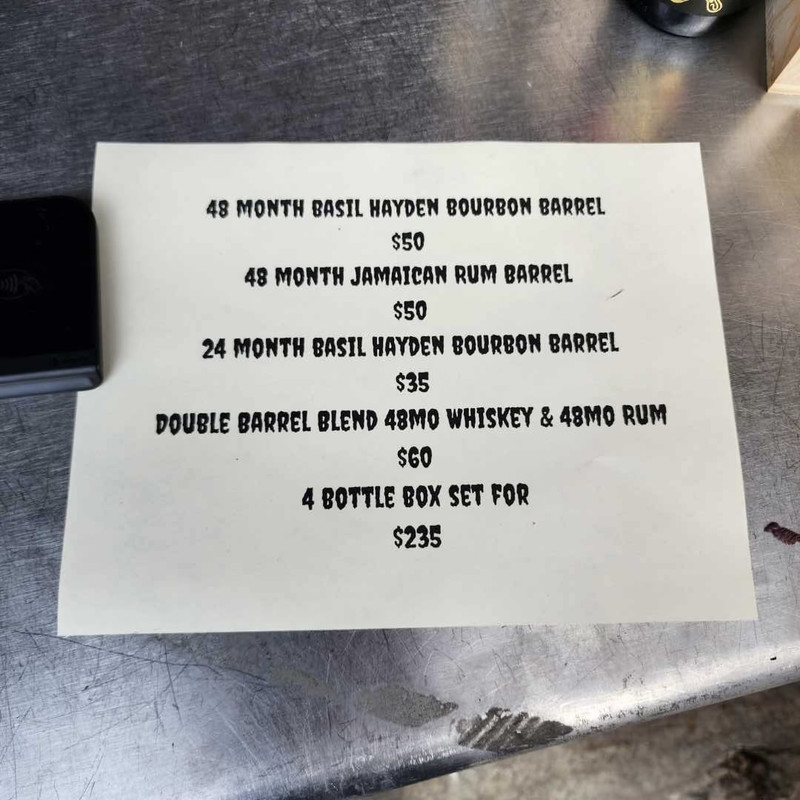 48 MONTH BASIL HAYDEN BOURBON BARREL
$50
48 MONTH JAMAICAN RUM BARREL
$50
24 MONTH BASIL HAYDEN BOURBON BARREL
$35
DOUBLE BARREL BLEND 48MO WHISKEY & 48MO RUM
$60
4 BOTTLE BOX SET FOR
$235